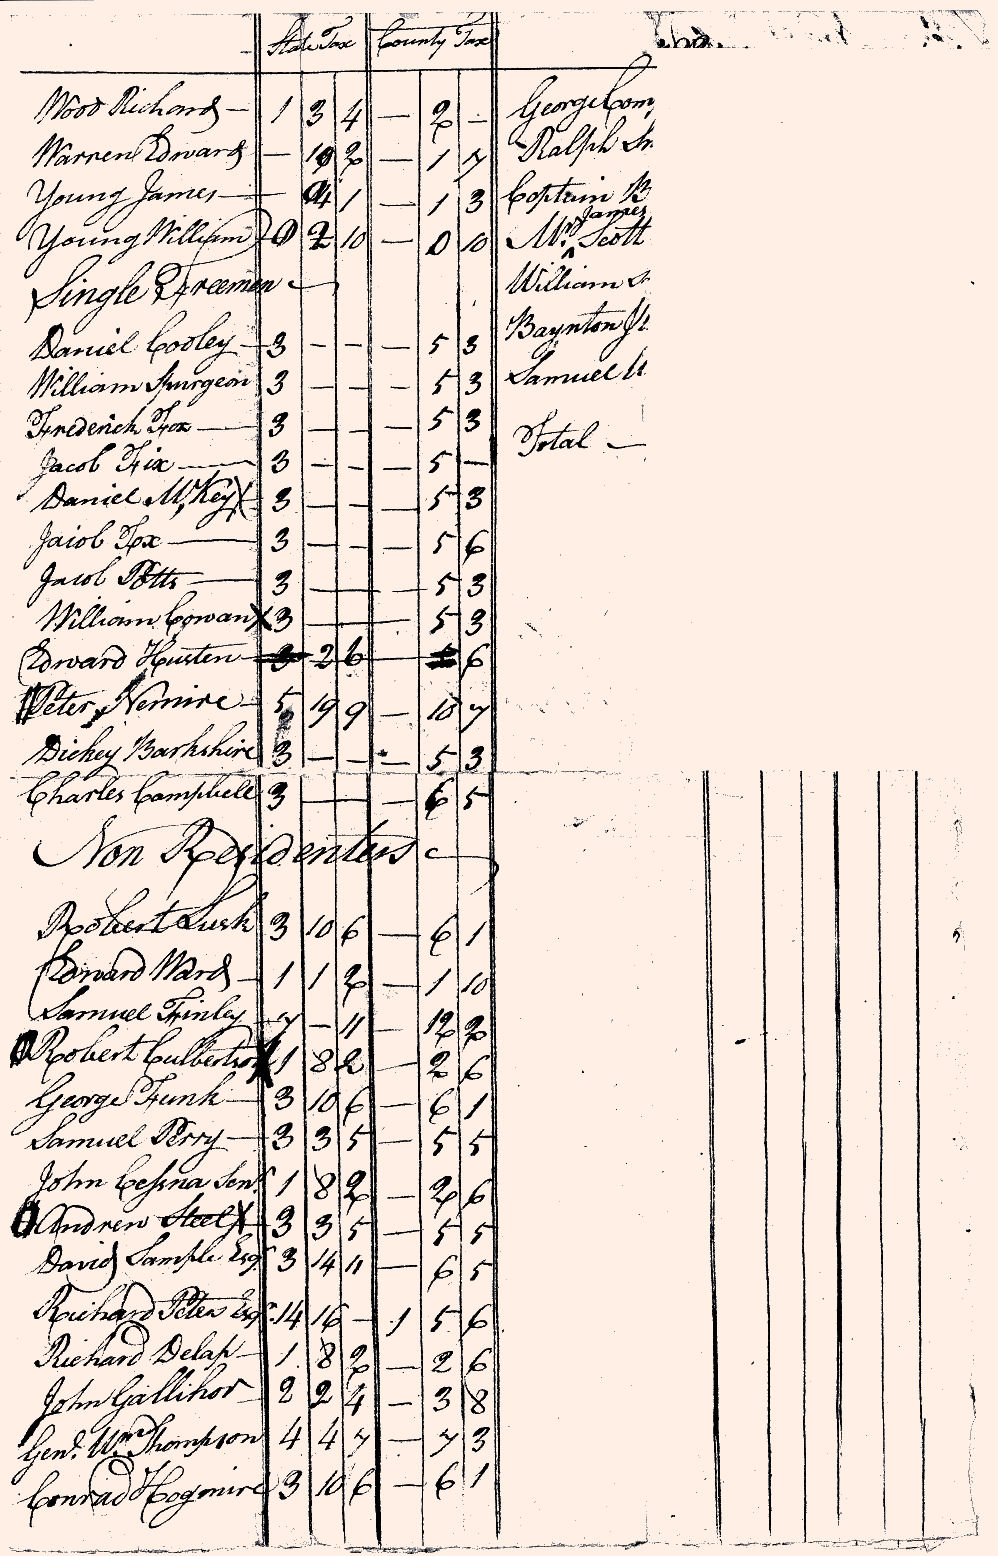 State Tax County Tax
Wood Richard — 1 3 4 — 2 -
Warren Edward — 2 — 1 7
Young James — 4 1 — 1 3
Young William 0 2 10 — 0 10
Single Freemen
Daniel Cooley 3 - - — 5 3
William Spurgeon 3 - - — 5 3
Frederick Fox — 3 - - — 5 3
Jacob Fix — 3 - - — 5 —
Daniel McKey X 3 - - — 5 3
Jaiob Fox — 3 - - — 5 6
Jacob Potts — 3 — — — 5 3
William Cowan X 3 — — — 5 3
Edward Husten — 2 6 — 6
Peter Nemire — 5 19 9 — 10 7
Dickey Barkshire 3 - - - 5 3
Charles Campbell 3 — — — 6 5
Non Residenters
Robert Lusk 3 10 6 — 6 1
Edward Ward — 1 1 2 — 1 10
Samuel Finley — 7 — 11 — 12 2
Robert Culbertson X 1 8 2 — 2 6
George Funk — 3 10 6 — 6 1
Samuel Perry — 3 3 5 — 5 5
John Cessna Senr 1 8 2 — 2 6
Andrew Steel X 3 3 5 — 5 5
David Sample Esqr 3 14 11 — 6 5
Richard Peters Esqr 14 16 — 1 5 6
Richard Delap — 1 8 2 — 2 6
John Gallihor — 2 2 4 — 3 8
Genl. Wm Thompson 4 4 7 — 7 3
Conrad Hogmire 3 10 6 — 6 1
George Com
Ralph
Captain
James
Mr. Scott
William
Baynton
Samuel
Total —